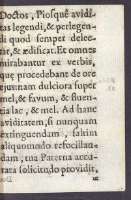 Doctos, Piosque avidi-
tas legendi, & perlegen-
di quod semper delec-
tat, & ædificat. Et omnes
mirabantur ex verbis,
quæ procedebant de ore
ejus nam dulciora super
mel, & favum, & fluen-
tia lac, & mel. Ad hanc
aviditatem, si nunquam
extinguendam, saltim
aliquomodo refocillan-
dam, tua Paterna accu-
rata solicitudo providit,